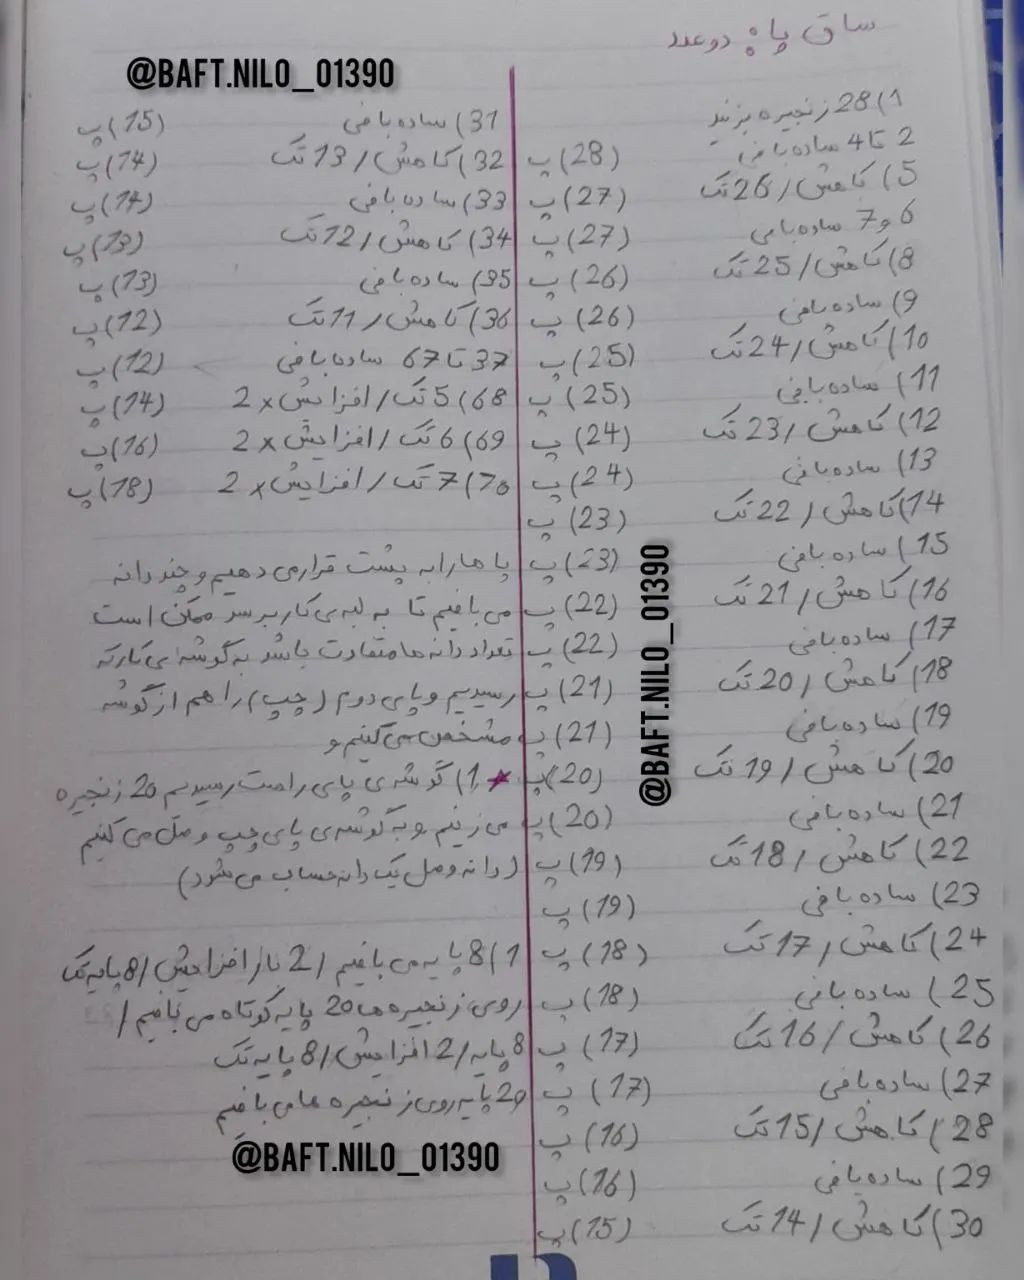 ساق پا دو عدد
@BAFT.NILO_01390
1) 28 زنجیره بزنید
2 تا 4 ساده بافی (28) پ
5) کاهش / 26 تک (27) پ
6 و 7 ساده بافی (27) پ
8) کاهش / 25 تک (26) پ
9) ساده بافی (26) پ
10) کاهش / 24 تک (25) پ
11) ساده بافی (25) پ
12) کاهش / 23 تک (24) پ
13) ساده بافی (24) پ
14) کاهش / 22 تک (23) پ
15) ساده بافی (23) پ
16) کاهش / 21 تک (22) پ
17) ساده بافی (22) پ
18) کاهش / 20 تک (21) پ
19) ساده بافی (21) پ
20) کاهش / 19 تک (20) پ
21) ساده بافی (20) پ
22) کاهش / 18 تک (19) پ
23) ساده بافی (19) پ
24) کاهش / 17 تک (18) پ
25) ساده بافی (18) پ
26) کاهش / 16 تک (17) پ
27) ساده بافی (17) پ
28) کاهش / 15 تک (16) پ
29) ساده بافی (16) پ
30) کاهش / 14 تک (15) پ
@BAFT.NILO_01390
31) ساده بافی (15) پ
32) کاهش / 13 تک (14) پ
33) ساده بافی (14) پ
34) کاهش / 12 تک (13) پ
35) ساده بافی (13) پ
36) کاهش / 11 تک (12) پ
37 تا 67 ساده بافی (12) پ
68) 5 تک / افزایش × 2 (14) پ
69) 6 تک / افزایش × 2 (16) پ
70) 7 تک / افزایش × 2 (18) پ
پا ها را به پشت قرار می دهیم و چند دانه
می بافیم تا به لبه ی کار برسد ممکن است
تعداد دانه ها متفاوت باشد به گوشه ی کار که
رسیدیم و پای دوم (چپ) را هم از گوشه
مشخص می کنیم و
* 1) گوشه ی پای راست رسیدیم 20 زنجیره
می زنیم و به گوشه ی پای چپ وصل می کنیم
(دانه وصل یک دانه حساب می شود)
1) 8 پایه می بافیم / 2 بار افزایش / 8 پایه تک
روی زنجیره ها 20 پایه کوتاه می بافیم /
8 پایه / 2 افزایش / 8 پایه تک
و 20 پایه روی زنجیره ها می بافیم
@BAFT.NILO_01390